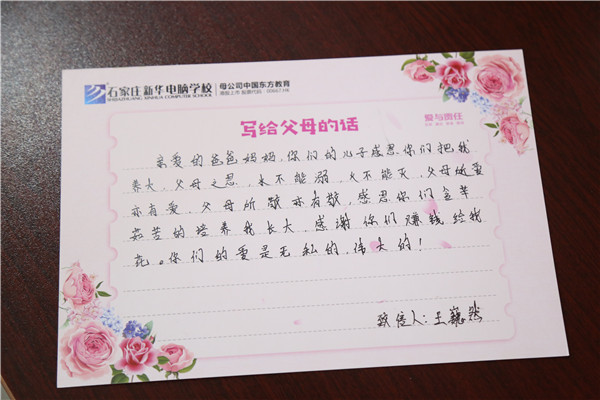 石家庄新华电脑学校
SHIJIAZHUANG XINHUA COMPUTER SCHOOL
母公司中国东方教育
港股上市 股票代码：00667.HK
爱与责任
写给父母的话
亲爱的爸爸妈妈，你们的儿子感恩你们把我
养大，父母之恩，水不能溺，火不能灭，父母所爱
亦有爱，父母所敬亦有敬，感恩你们含辛
茹苦的培养我长大，感谢你们赚钱给我
花。你们的爱是无私的，伟大的！
致信人：王巍然